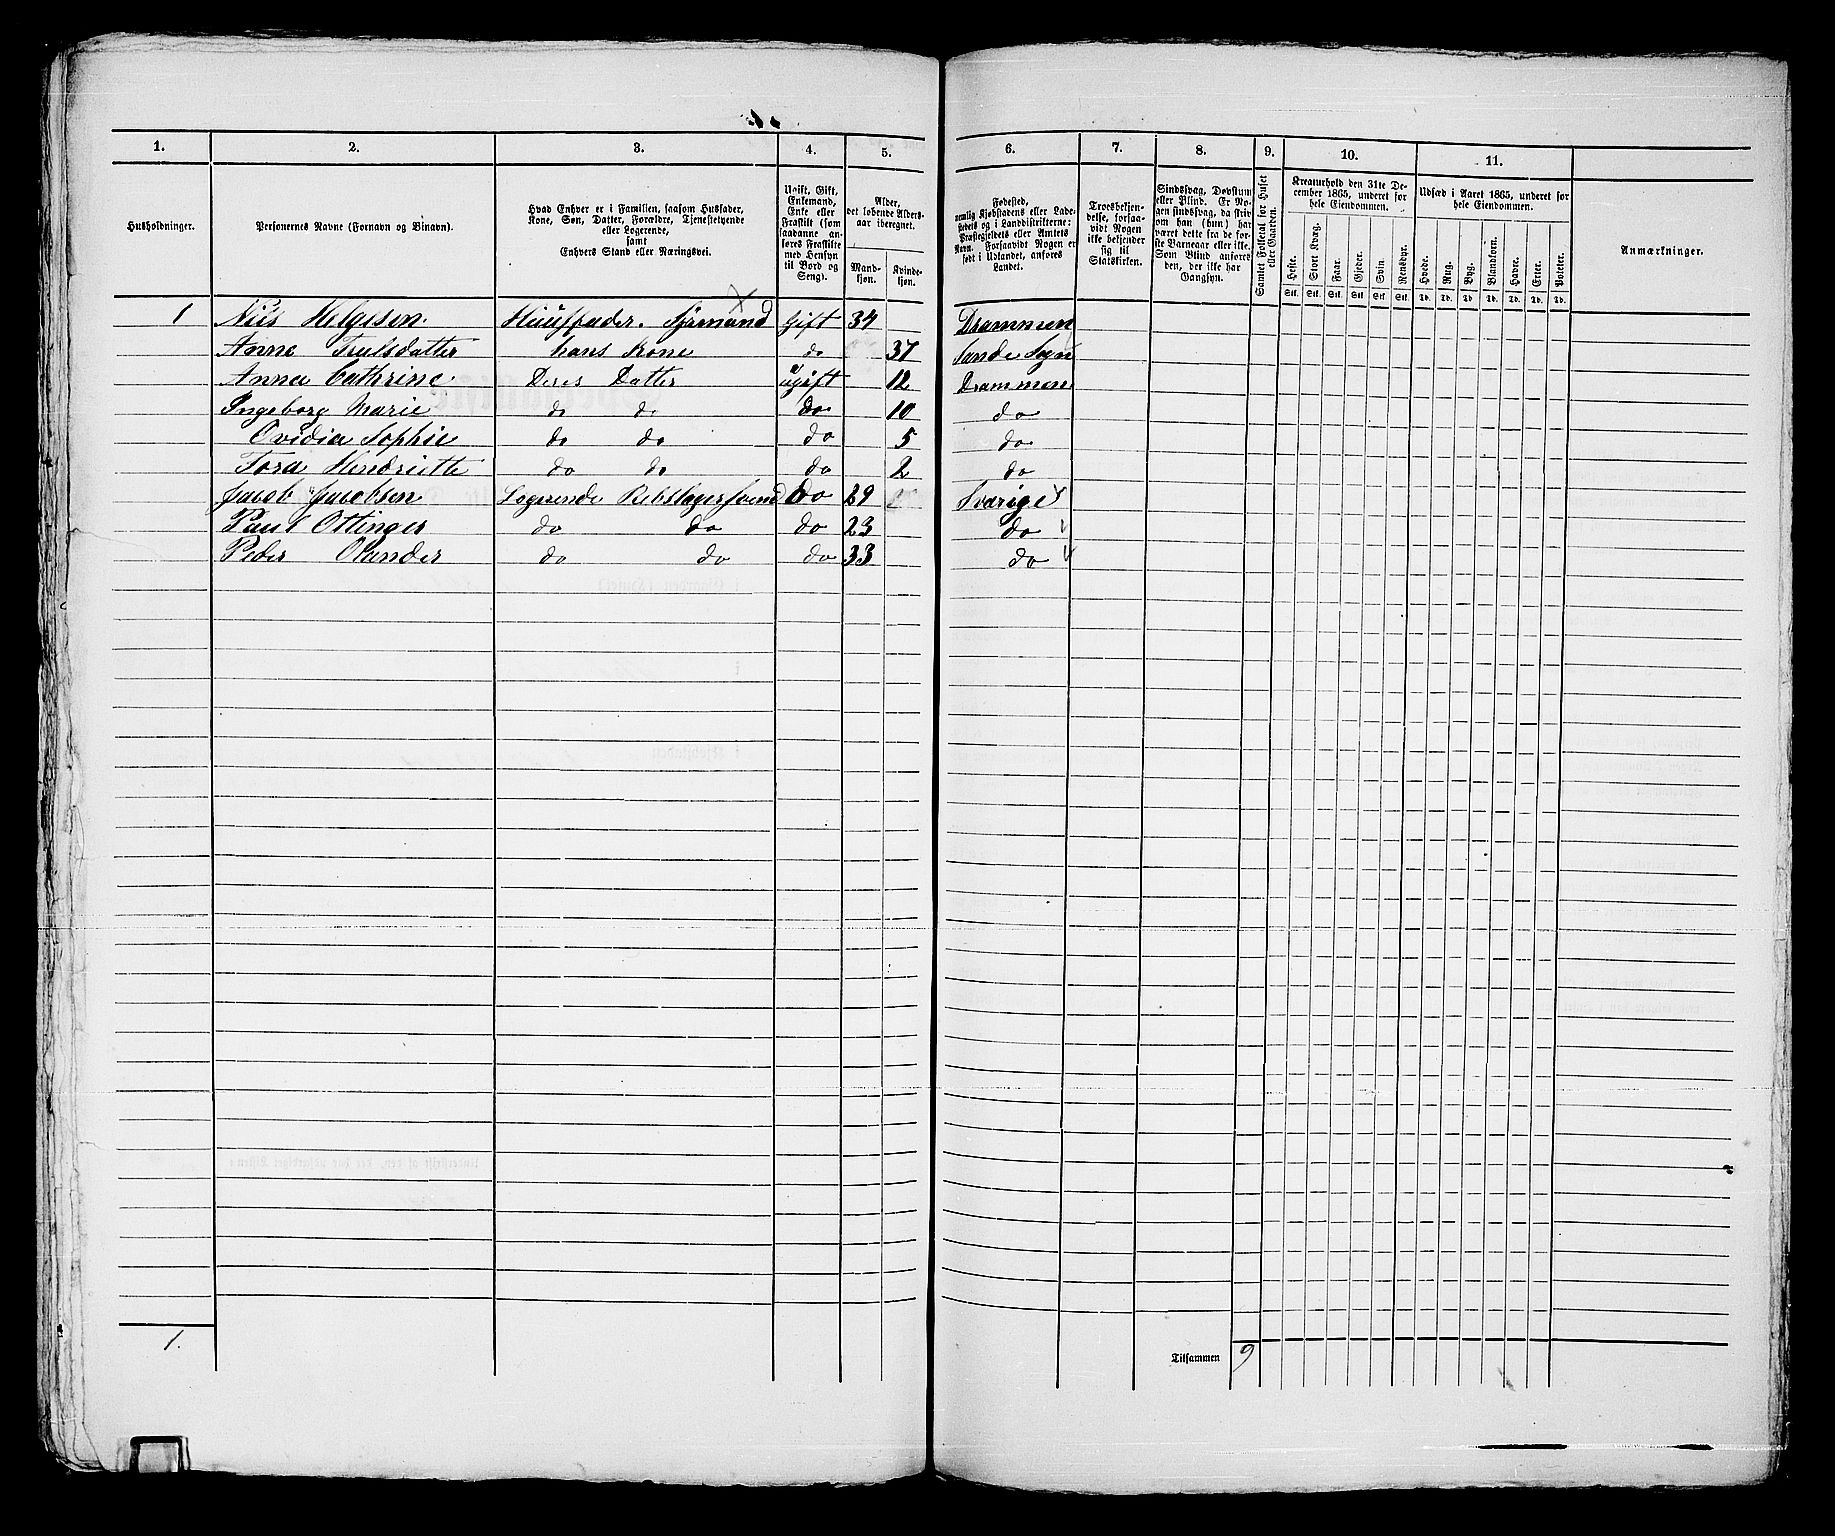 1. 2. 3. 4. 5. 6. 7. 8. 9. 10. 11.
Husholdninger.
Personernes Navne (Fornavn og Binavn).
Hvad Enhver er i Familien, saasom Husfader,
Kone, Søn, Datter, Forældre, Tjenestetyende
eller Logerende,
samt
Enhvers Stand eller Næringsvei.
Ugift, Gift,
Enkemand,
Enke eller
Fraskilt (som
saadanne an-
føres Fraskilte
med Hensyn
til Bord og
Seng).
Alder,
det løbende Alders-
aar iberegnet.
Mand-
kjøn.
Kvinde-
kjøn.
Fødested,
nemlig Kjøbstadens eller Lade-
stedets og i Landdistrikterne:
Præstegjeldets eller Amtets
Navn. Forsaavidt Nogen er
født i Udlandet, anføres
Landet.
Troesbekjen-
delse, forsaa-
vidt Nogen
ikke bekjender
sig til
Statskirken.
Sindssvag, Døvstum
eller Blind. Er No-
gen sindssvag, da skriv
om han (hun) har
været dette fra de før-
ste Barneaar eller ikke.
Som Blind anføres
den, der ikke har
Gangsyn.
Samlet Folketal for Huset
eller Gaarden.
Kreaturhold den 31te De-
cember 1865, underet før
hele Eiendommen.
Heste. Stort Kvæg. Faar. Gjeder. Svin. Rensdyr.
Stk. Stk. Stk. Stk. Stk. Stk.
Udsæd i Aaret 1865, underet før
hele Eiendommen.
Hvede. Rug. Byg. Blandkorn. Havre. Erter. Poteter.
Td. Td. Td. Td. Td. Td. Td.
Anmærkninger.
1 Nils Helgesen Huusfader. Sjømand Gift 34 Drammen
Anne Trulsdatter hans Kone do 37 Sande Sogn
Anna Cathrine Deres Datter ugift 12 Drammen
Ingeborg Marie do do do 10 do
Ovidia Sophie do do do 5 do
Tora Hendriette do do do 2 do
Jacob Jacobsen Logerende Rebslagersvend do 29 Sverige
Paul Ottinger do do do 23 do
Peder do do do 33 do
1.
Tilsammen 9